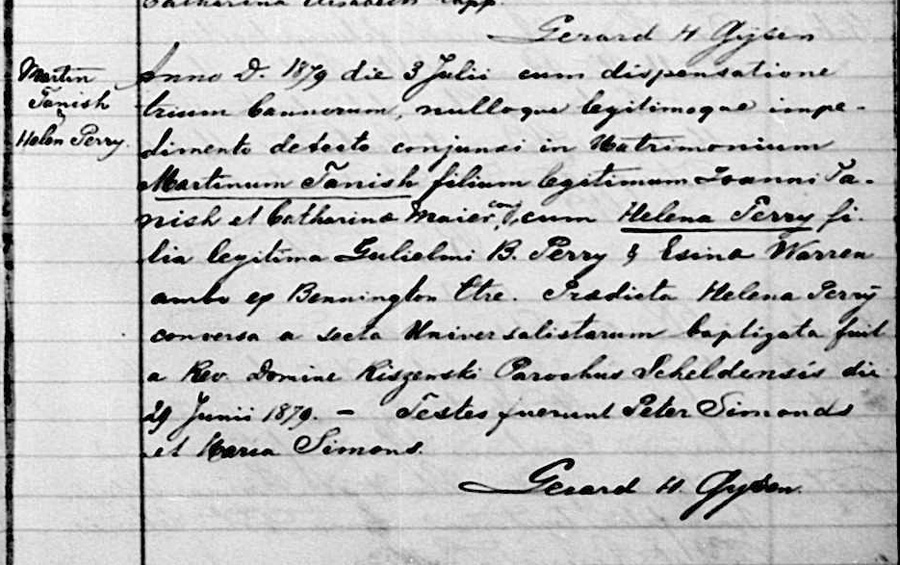 Catharina Elisabeth Capp.
Gerard H Gysen
Martin
Tanish
&
Helen Perry.
Anno D. 1879 die 3 Julii cum dispensatione
trium bannorum, nulloque legitimoque impe-
dimento detecto conjunxi in Matrimonium
Martinum Tanish filium legitimum Joanni Ta-
nish et Catharina Maier, cum Helena Perry fi-
lia legitima Gulielmi B. Perry & Esina Warren
ambo ex Bennington Ctre. Prædicta Helena Perry
conversa a secta Universalistarum baptizata fuit
a Rev. Domine Riszewski Parochus Scheldensis die
29 Junii 1879. – Testes fuerunt Peter Simonds
et Maria Simons.
Gerard H. Gysen.